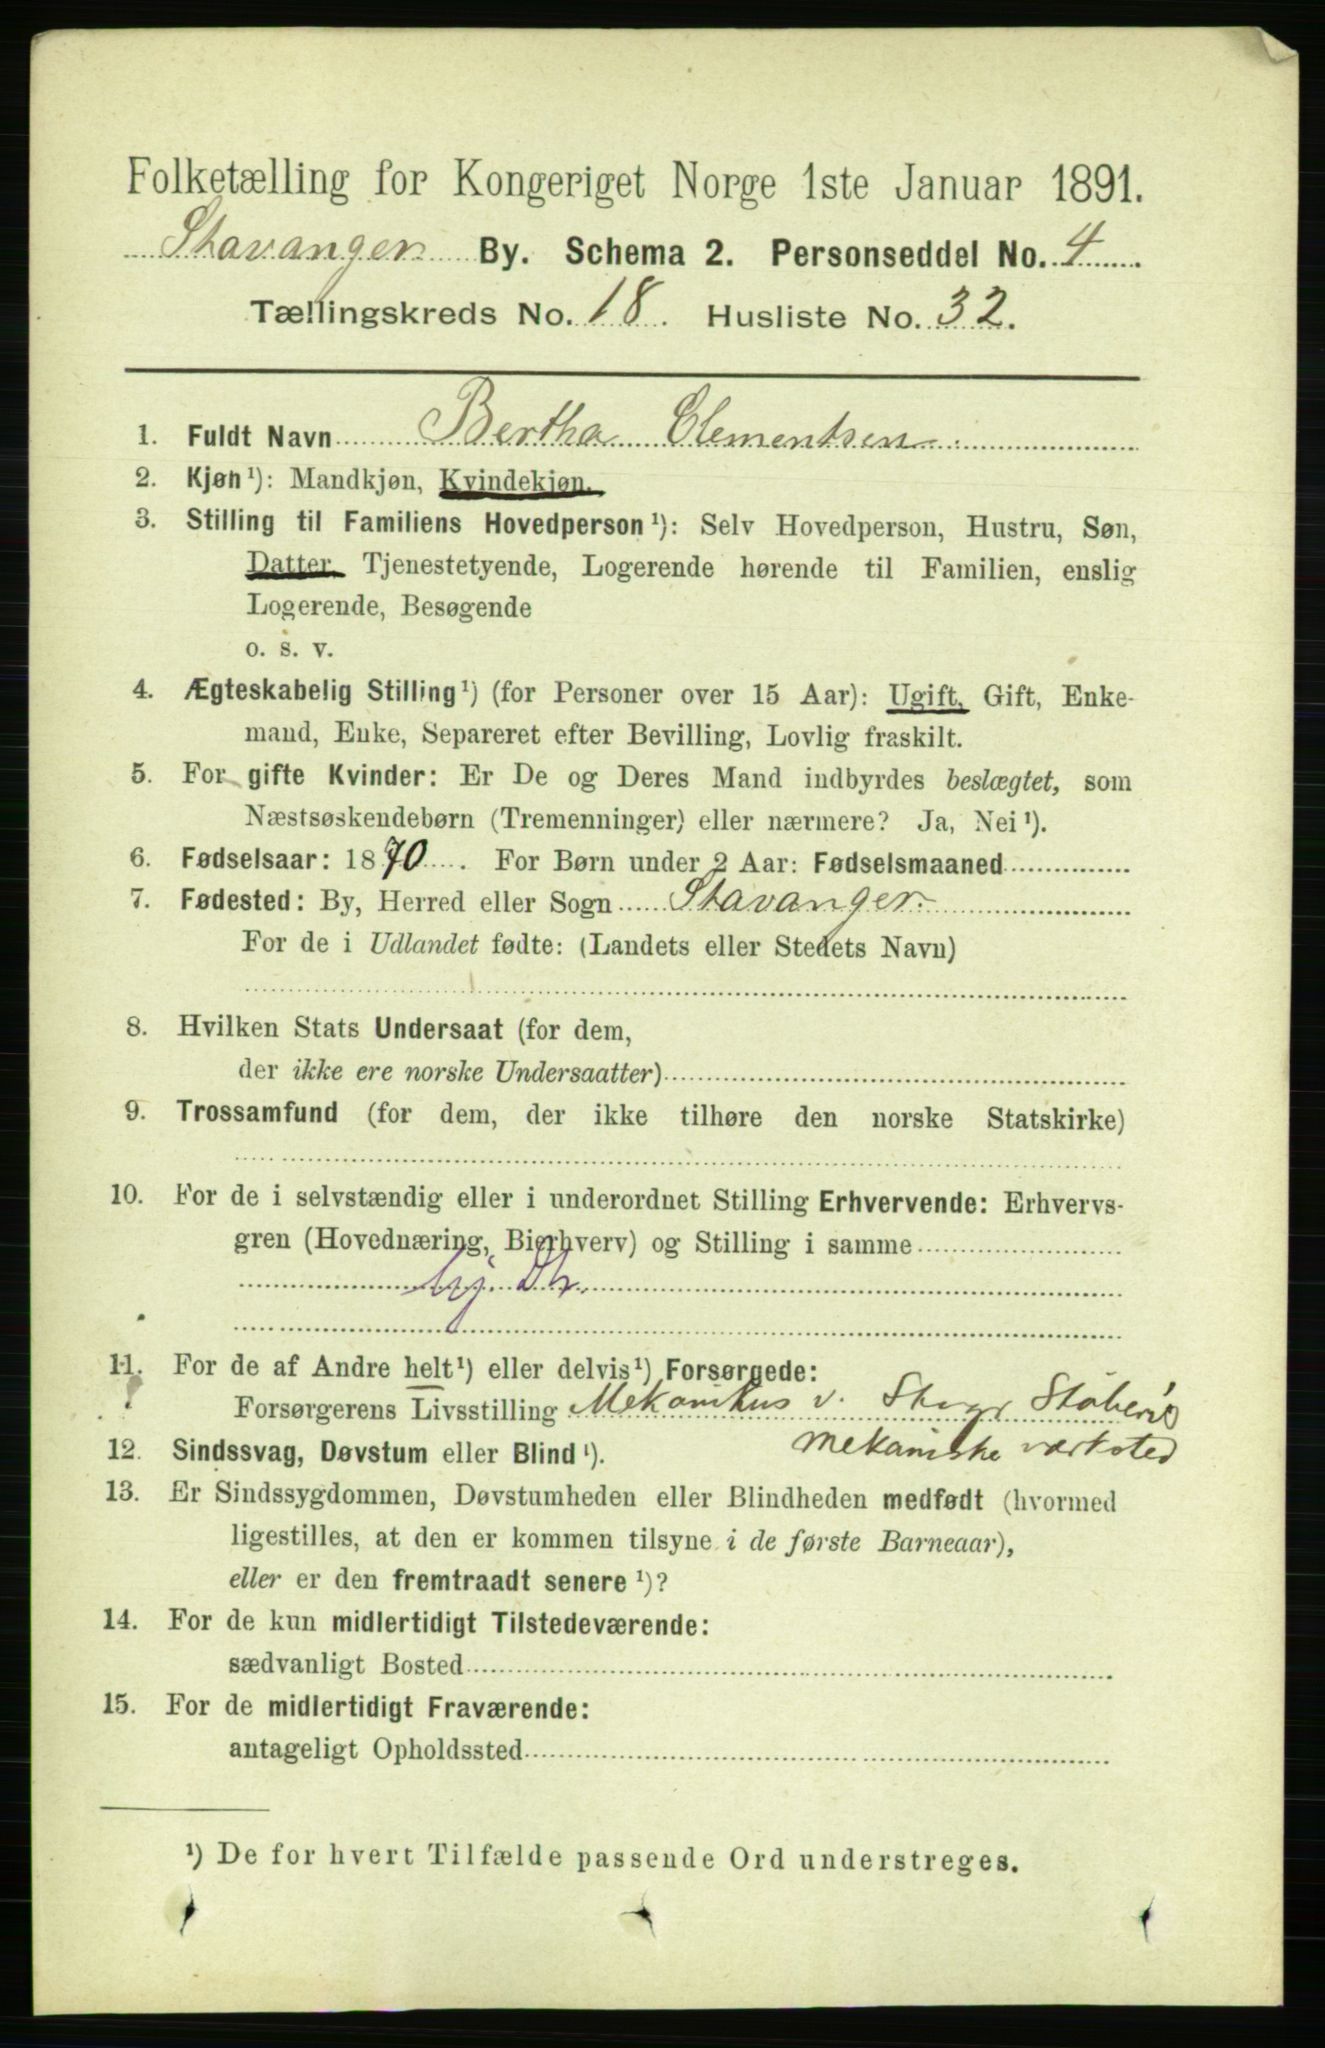 Folketælling for Kongeriget Norge 1ste Januar 1891.
Stavanger By. Schema 2. Personseddel No. 4
Tællingskreds No. 18. Husliste No. 32.
1. Fuldt Navn Bertha Clementsen
2. Kjøn ¹): Mandkjøn, Kvindekjøn.
3. Stilling til Familiens Hovedperson ¹): Selv Hovedperson, Hustru, Søn,
Datter, Tjenestetyende, Logerende hørende til Familien, enslig
Logerende, Besøgende
o. s. v.
4. Ægteskabelig Stilling ¹) (for Personer over 15 Aar): Ugift, Gift, Enke-
mand, Enke, Separeret efter Bevilling, Lovlig fraskilt.
5. For gifte Kvinder: Er De og Deres Mand indbyrdes beslægtet, som
Næstsøskendebørn (Tremenninger) eller nærmere? Ja, Nei ¹).
6. Fødselsaar: 1870. For Børn under 2 Aar: Fødselsmaaned
7. Fødested: By, Herred eller Sogn Stavanger
For de i Udlandet fødte: (Landets eller Stedets Navn)
8. Hvilken Stats Undersaat (for dem,
der ikke ere norske Undersaatter)
9. Trossamfund (for dem, der ikke tilhøre den norske Statskirke)
10. For de i selvstændig eller i underordnet Stilling Erhvervende: Erhvervs-
gren (Hovednæring, Bierhverv) og Stilling i samme
11. For de af Andre helt ¹) eller delvis ¹) Forsørgede:
Forsørgerens Livsstilling Mekanikus v. Støberi
mekaniske værksted
12. Sindssvag, Døvstum eller Blind ¹).
13. Er Sindssygdommen, Døvstumheden eller Blindheden medfødt (hvormed
ligestilles, at den er kommen tilsyne i de første Barneaar),
eller er den fremtraadt senere ¹)?
14. For de kun midlertidigt Tilstedeværende:
sædvanligt Bosted
15. For de midlertidigt Fraværende:
antageligt Opholdssted
¹) De for hvert Tilfælde passende Ord understreges.